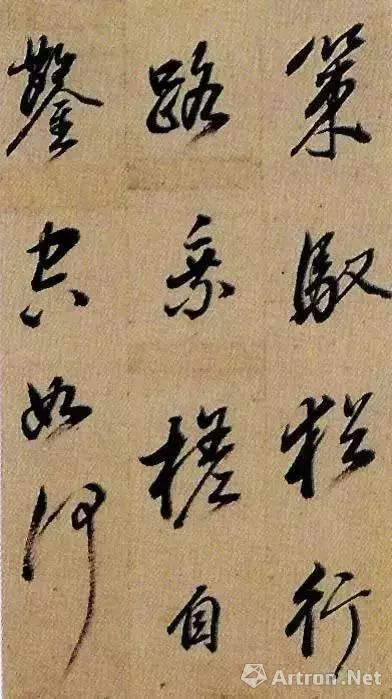 策馭行
路乘槎自
鑿空如何
Artron.Net